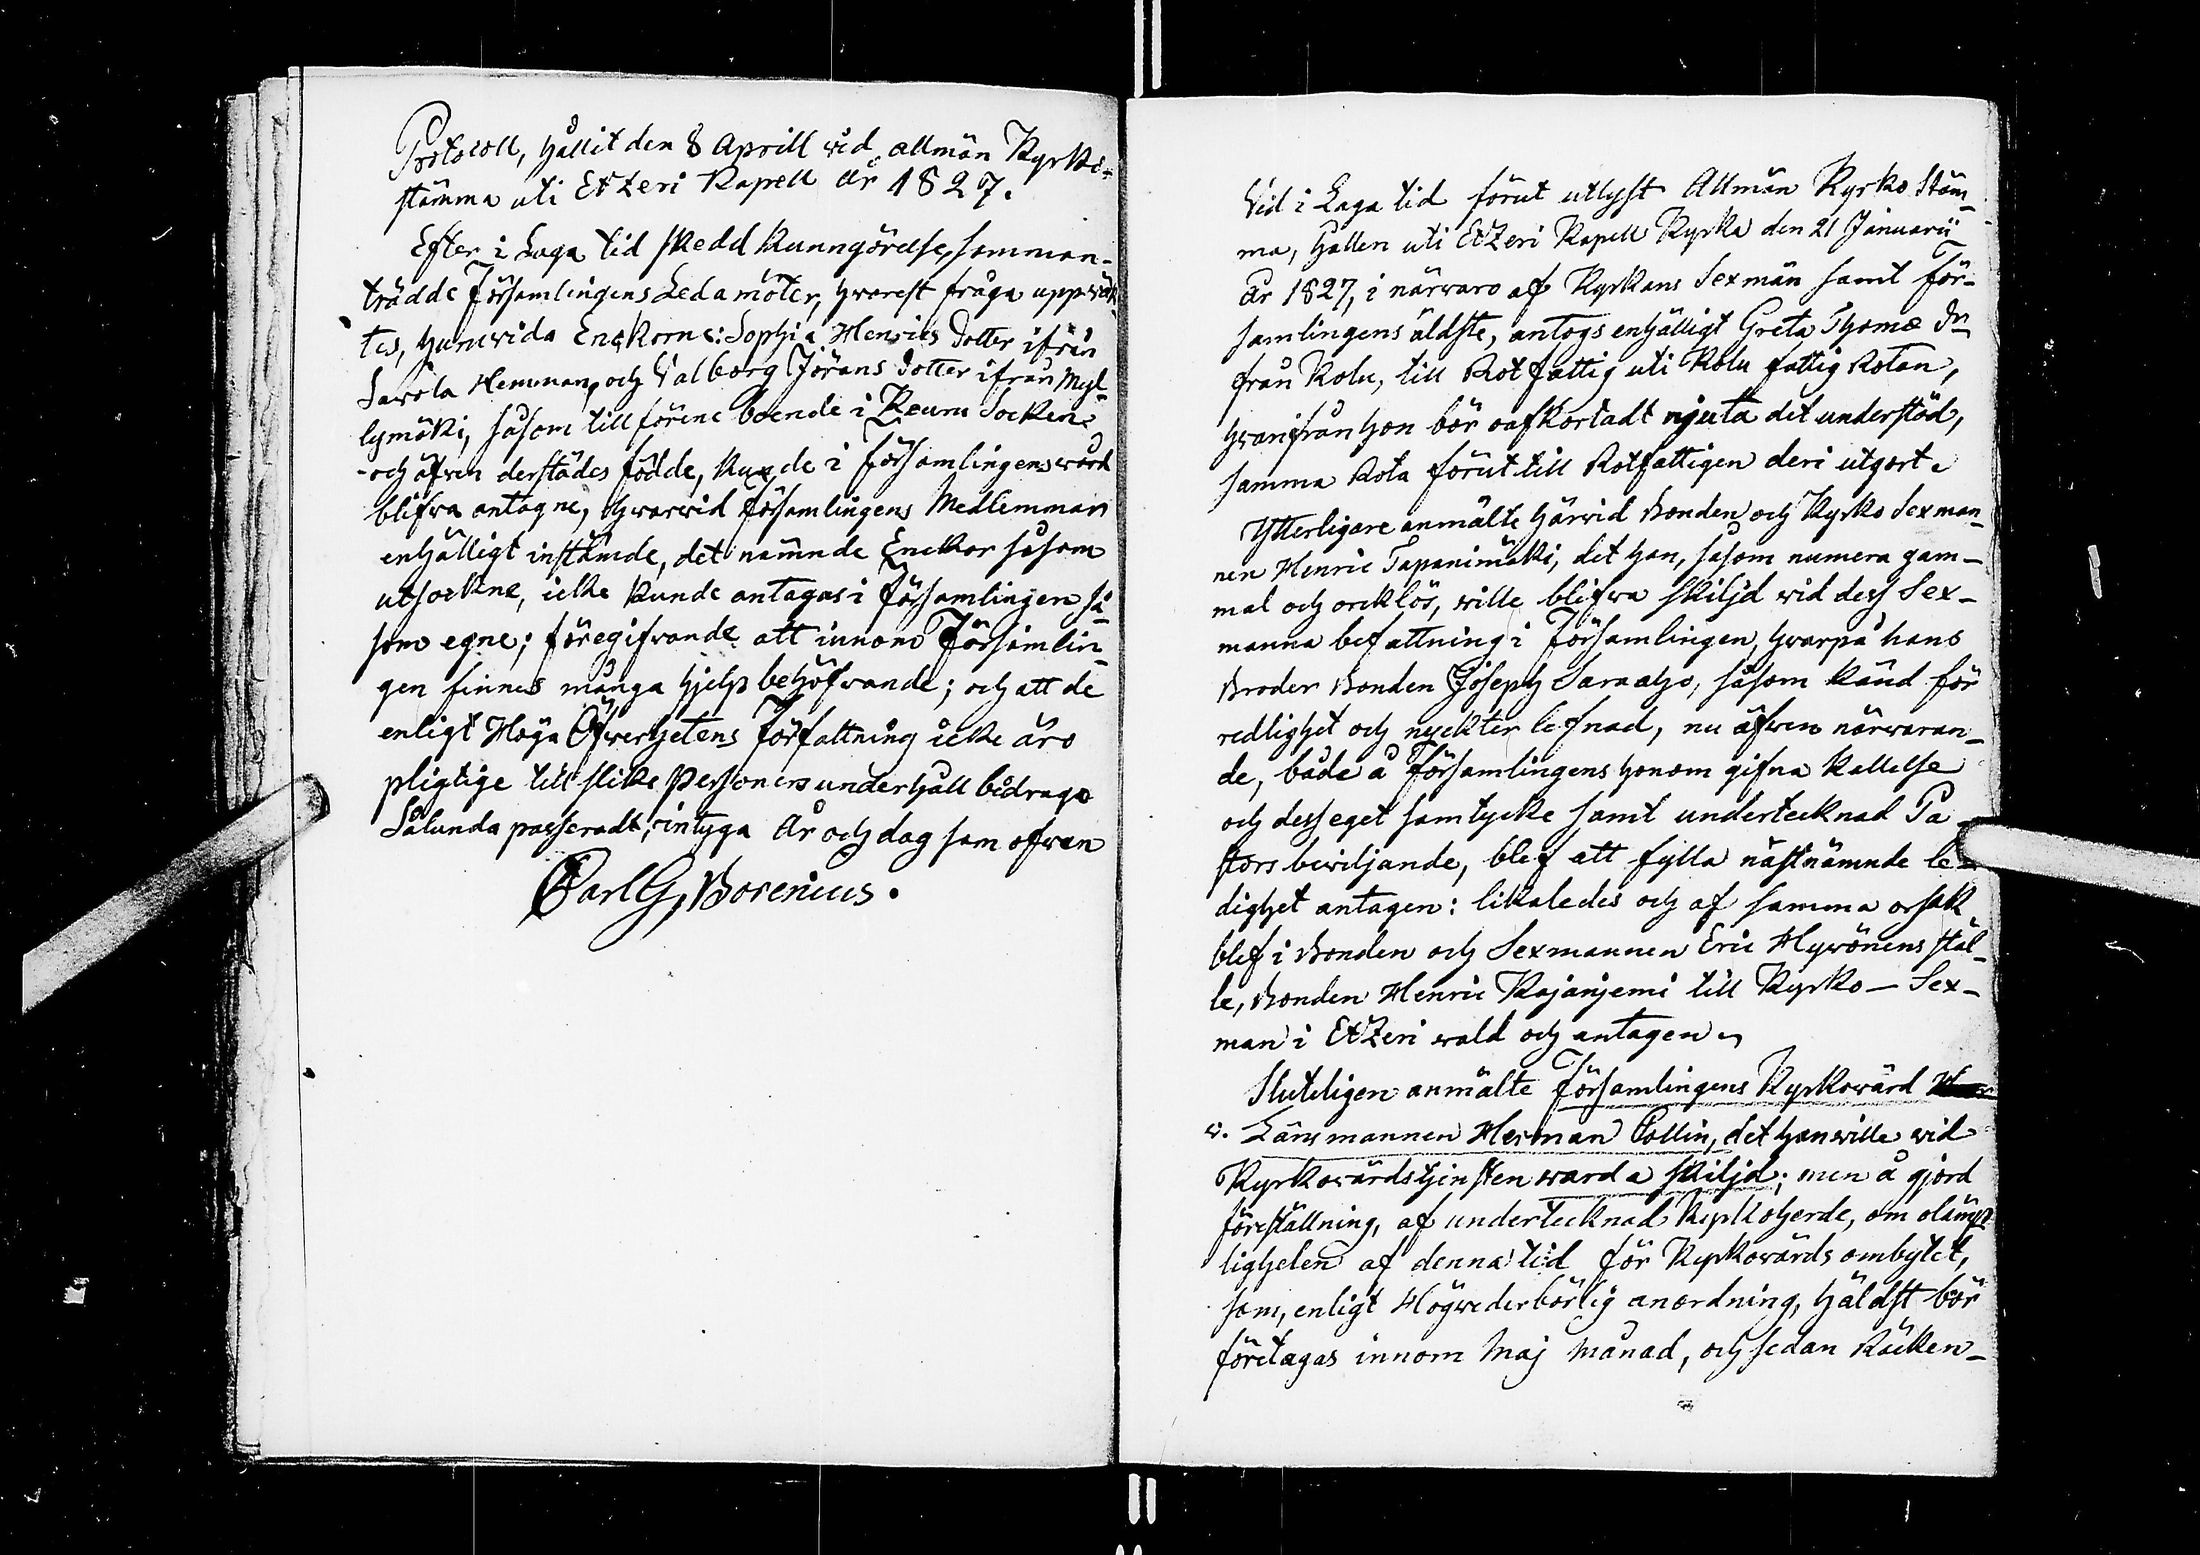 Protocoll, hållit den 8 Aprill wid allmän Kyrko-
stämma uti Etzeri Kapell År 1827.
Efter i Laga tid skedd kunngörelse, samman-
trädde Församlingens Ledamöter, hwarest fråga uppwäk-
tes, huruvida Enckorne: Sophia Henrics dotter ifrån
Sarola Hemman, och Valborg Jörans dotter ifrån Myl-
lymäki, såsom tillförene boende i Keuru Socken
och äfven derstädes födde, kunde i församlingens wård
blifva antagne, hwarwid församlingens Medlemmar
enhälligt instämde, det nämnde Enckor såsom
utsockne, icke kunde antagas i Församlingen så-
som egne; föregifvande att innom Församlin-
gen finnes många hjelp behöfwande; och att de
enligt Höga Öfwerhetens författning icke äro
pligtige till slike Personers underhåll bidraga
Sålunda passeradt, intyga År och dag som ofvan
Carl G. Borenius.
Vid i Laga tid förut utlyst Allmän Kyrko Stäm-
ma, hållen uti Etzeri Kapell Kyrka den 21 Januarii
År 1827, i närwaro af Kyrkans Sexmän samt för-
samlingens äldste, antogs enhälligt Greta Thomæ dr
från Kolu, till Rotfattig uti Kolu fattig Rotan,
hwarifrån hon bör oafkortadt njuta det understöd,
samma Rota förut till Rotfattigen deri utgort.
Ytterligare anmälte härwid Bonden och Kyrko Sexman-
nen Henric Tapanimäki, det han, såsom numera gam-
mal och orcklös, wille blifva skiljd wid dess Sex-
manna befattning i Församlingen, hwarpå hans
Broder Bonden Joseph Saraaho, såsom känd för
redlighet och nyckter lefnad, nu äfven närwaran-
de, både å Församlingens honom gifna kallelse
och dess eget samtycke samt undertecknad Pa-
stors bewiljande, blef att fylla nästnämnde le-
dighet antagen: likaledes och af samma orsak
blef i Bonden och Sexmannen Eric Hywönens stäl-
le, Bonden Henric Kajanjemi till Kyrko - Sex-
man i Etzeri wald och antagen.
Sluteligen anmälte Församlingens Kyrkowärd
v. Länsmannen Herman Pollin, det han wille wid
Kyrkowärdstjensten warda skiljd; men å gjord
föreställning, af undertecknad Kyrkoherde, om olämp-
ligheten af denna tid för Kyrkowärds ombytet,
som, enligt Högwederbörlig anordning, häldst bör
företagas innom Maj månad, och sedan Räcken-